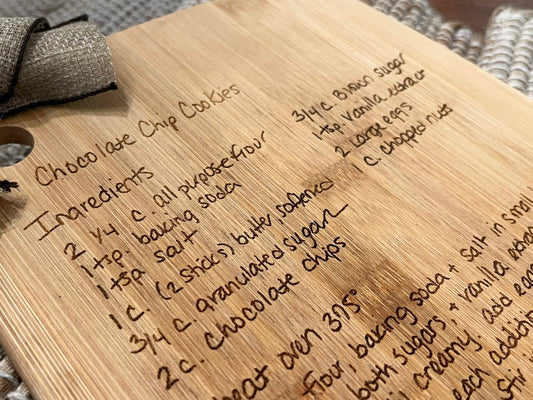 Chocolate Chip Cookies
Ingredients
2 1/4 c. all purpose flour
1 tsp. baking soda
1 tsp. salt
1 c. (2 sticks) butter softened
3/4 c granulated sugar
2 c. chocolate chips
3/4 c. Brown sugar
1 tsp. vanilla extract
2 Large eggs
1 c. chopped nuts
oven 375°
flour, baking soda + salt in small
both sugars + vanilla
creamy. add
each addition